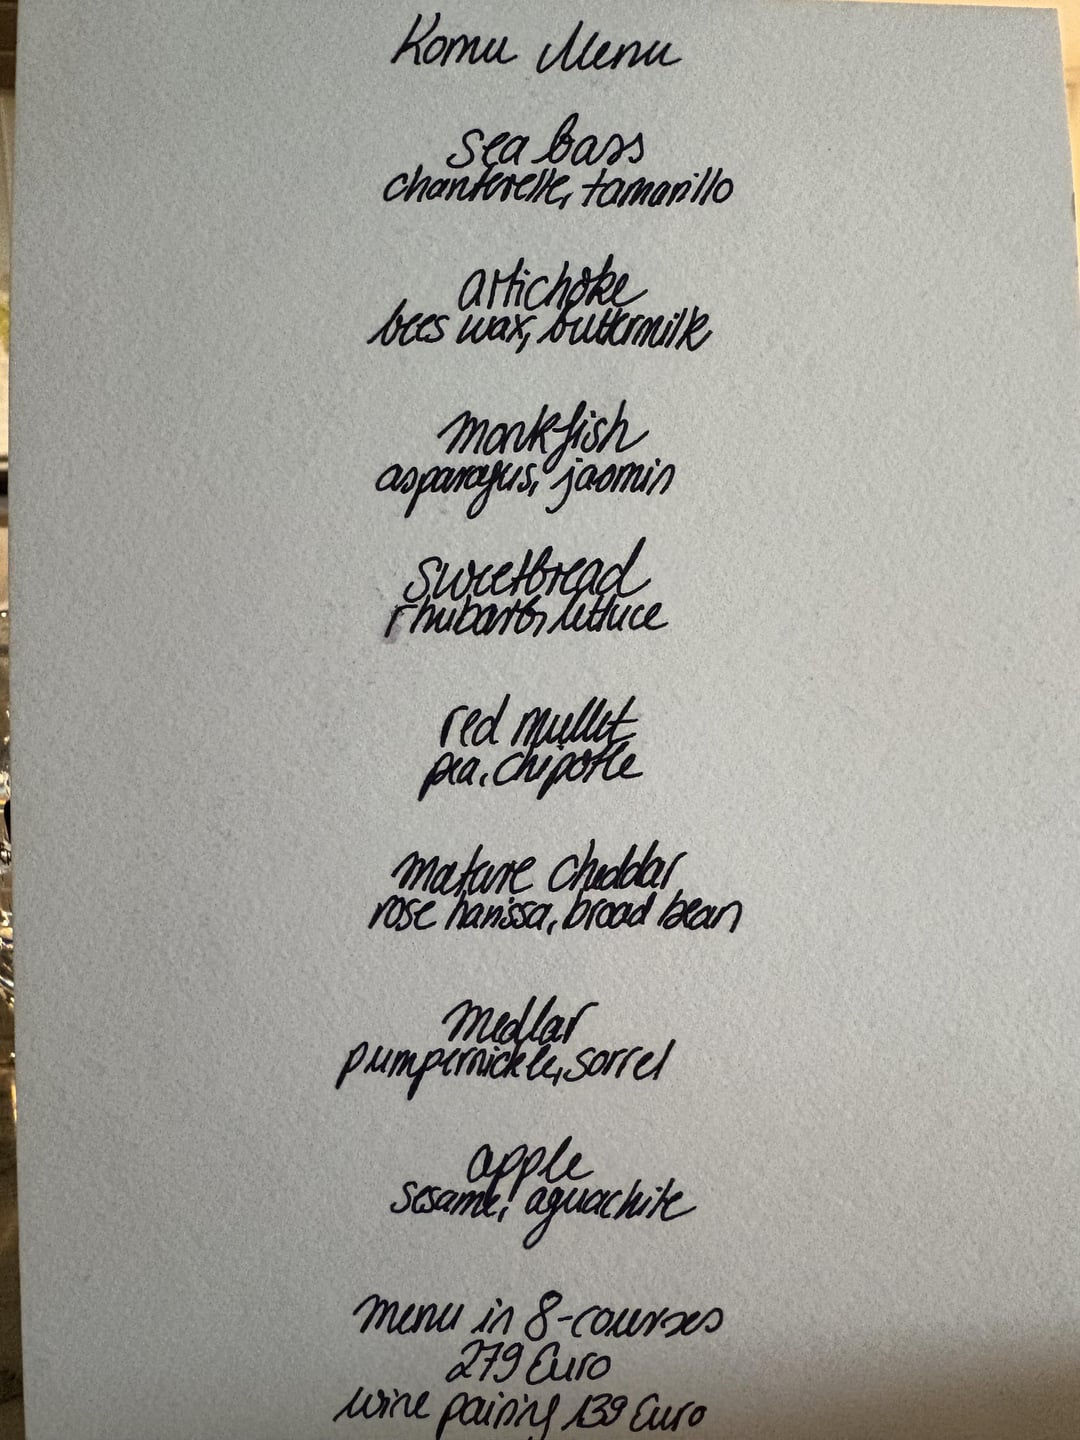 Komu Menu
sea bass
chanterelle, tamarillo
artichoke
bees wax, buttermilk
monkfish
asparagus, jasmin
sweetbread
rhubarb, lettuce
red mullet
pea, chipotle
mature cheddar
rose harissa, broad bean
medlar
pumpernickle, sorrel
apple
sesame, aguachile
menu in 8-courses
279 Euro
wine pairing 139 Euro